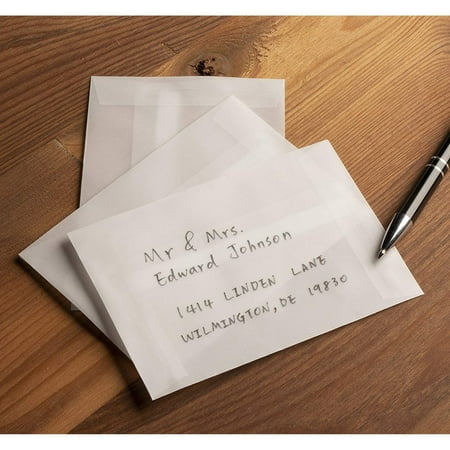 Mr & Mrs.
Edward Johnson
1414 LINDEN LANE
WILMINGTON, DE 19830